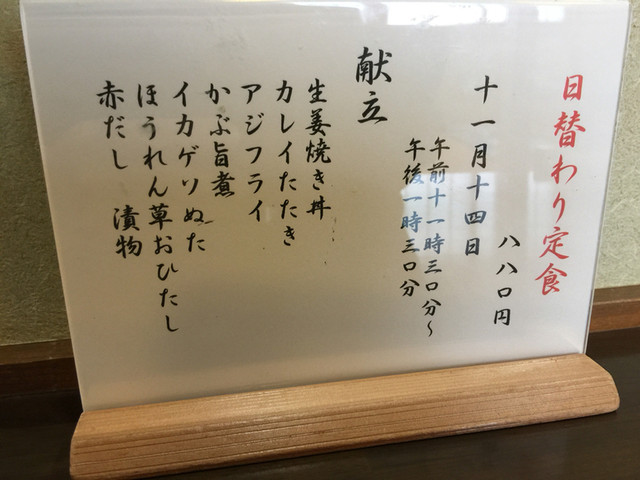 日替わり定食
八八〇円
十一月十四日
午前十一時三〇分～
午後一時三〇分
献立
生姜焼き丼
カレイたたき
アジフライ
かぶ旨煮
イカゲソぬた
ほうれん草おひたし
赤だし 漬物